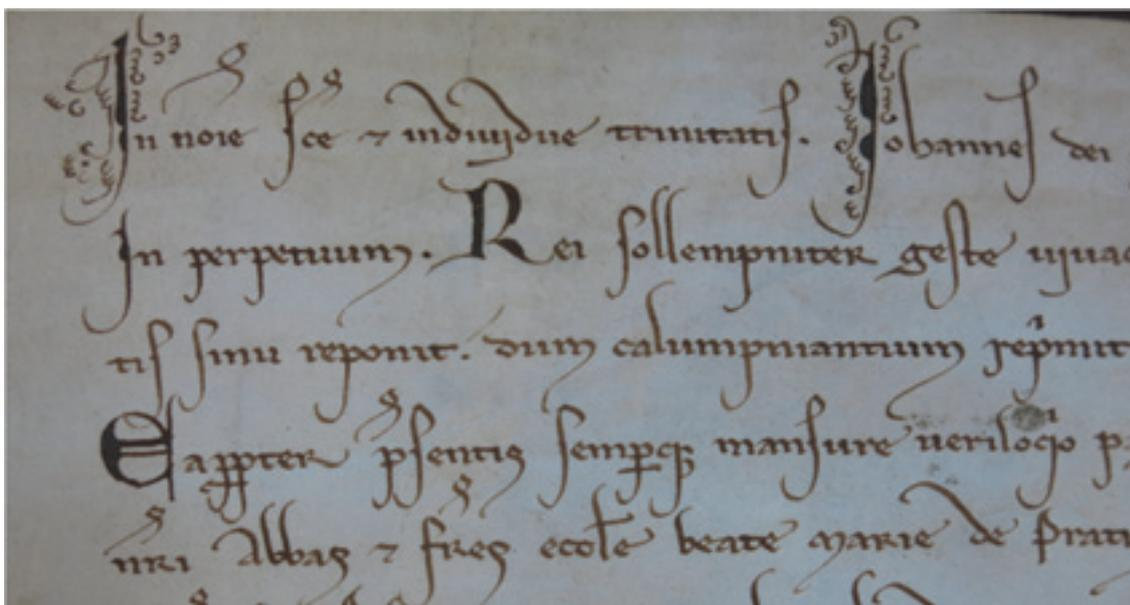 In noıe sce ⁊ indiuidue trinitatis. Iohannes dei
In perpetuum. Rei sollempniter geste uiuac
tis sinu reponit. dum calumpniantium rep'mit
Eapp̱ter p̄sentis semp̱q; mansure ueriloqio pa
nr̄i Abbas ⁊ fr̄es eccl̄e beate marie de prati